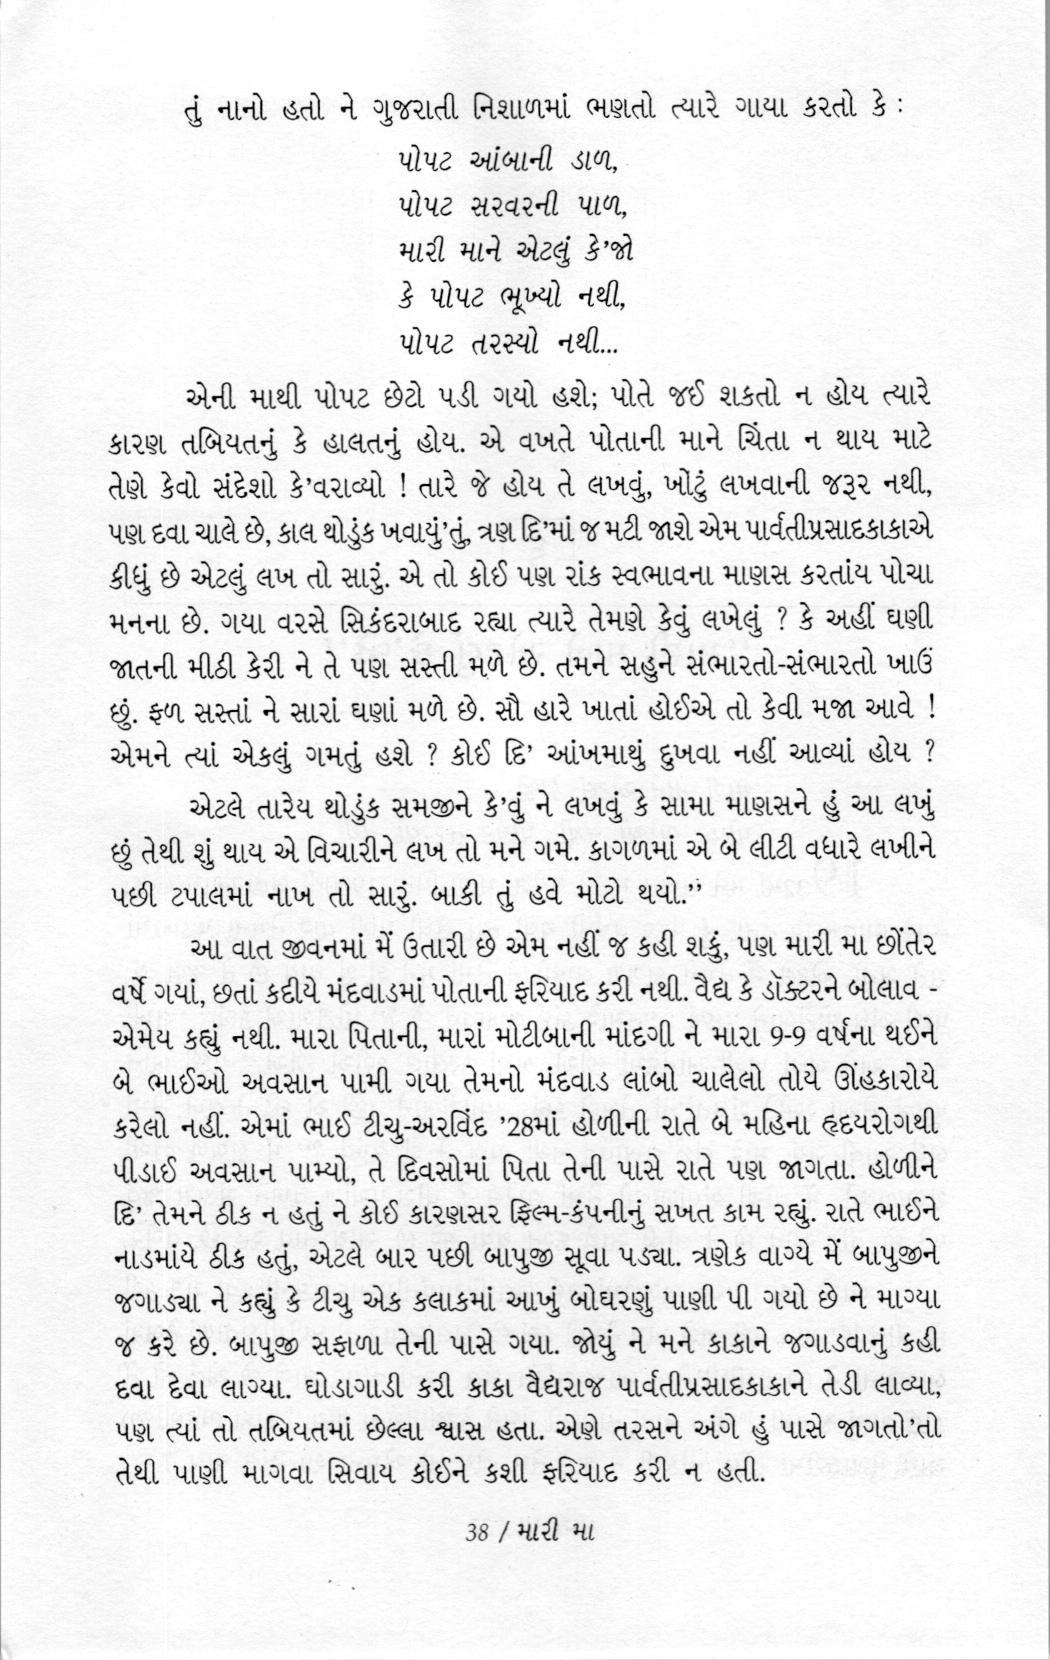 તું નાનો હતો ને ગુજરાતી નિશાળમાં ભણતો ત્યારે ગાયા કરતો કે :
પોપટ આંબાની ડાળ,
પોપટ સરવરની પાળ,
મારી માને એટલું કે'જો
કે પોપટ ભૂખ્યો નથી,
પોપટ તરસ્યો નથી...
એની માથી પોપટ છેટો પડી ગયો હશે; પોતે જઈ શકતો ન હોય ત્યારે
કારણ તબિયતનું કે હાલતનું હોય. એ વખતે પોતાની માને ચિંતા ન થાય માટે
તેણે કેવો સંદેશો કે'વરાવ્યો ! તારે જે હોય તે લખવું, ખોટું લખવાની જરૂર નથી,
પણ દવા ચાલે છે, કાલ થોડુંક ખવાયું'તું, ત્રણ દિ'માં જ મટી જાશે એમ પાર્વતીપ્રસાદકાકાએ
કીધું છે એટલું લખ તો સારું. એ તો કોઈ પણ રાંક સ્વભાવના માણસ કરતાંય પોચા
મનના છે. ગયા વરસે સિકંદરાબાદ રહ્યા ત્યારે તેમણે કેવું લખેલું ? કે અહીં ઘણી
જાતની મીઠી કેરી ને તે પણ સસ્તી મળે છે. તમને સહુને સંભારતો-સંભારતો ખાઉં
છું. ફળ સસ્તાં ને સારાં ઘણાં મળે છે. સૌ હારે ખાતાં હોઈએ તો કેવી મજા આવે !
એમને ત્યાં એકલું ગમતું હશે ? કોઈ દિ' આંખમાથું દુખવા નહીં આવ્યાં હોય ?
એટલે તારેય થોડુંક સમજીને કે'વું ને લખવું કે સામા માણસને હું આ લખું
છું તેથી શું થાય એ વિચારીને લખ તો મને ગમે. કાગળમાં એ બે લીટી વધારે લખીને
પછી ટપાલમાં નાખ તો સારું. બાકી તું હવે મોટો થયો.”
આ વાત જીવનમાં મેં ઉતારી છે એમ નહીં જ કહી શકું, પણ મારી મા છોંતેર
વર્ષે ગયાં, છતાં કદીયે મંદવાડમાં પોતાની ફરિયાદ કરી નથી. વૈદ્ય કે ડૉક્ટરને બોલાવ -
એમેય કહ્યું નથી. મારા પિતાની, મારાં મોટીબાની માંદગી ને મારા 9-9 વર્ષના થઈને
બે ભાઈઓ અવસાન પામી ગયા તેમનો મંદવાડ લાંબો ચાલેલો તોયે ઊંહકારોયે
કરેલો નહીં. એમાં ભાઈ ટીચુ-અરવિંદ '28માં હોળીની રાતે બે મહિના હૃદયરોગથી
પીડાઈ અવસાન પામ્યો, તે દિવસોમાં પિતા તેની પાસે રાતે પણ જાગતા. હોળીને
દિ' તેમને ઠીક ન હતું ને કોઈ કારણસર ફિલ્મ-કંપનીનું સખત કામ રહ્યું. રાતે ભાઈને
નાડમાંયે ઠીક હતું, એટલે બાર પછી બાપુજી સૂવા પડ્યા. ત્રણેક વાગ્યે મેં બાપુજીને
જગાડ્યા ને કહ્યું કે ટીચુ એક કલાકમાં આખું બોઘરણું પાણી પી ગયો છે ને માગ્યા
જ કરે છે. બાપુજી સફાળા તેની પાસે ગયા. જોયું ને મને કાકાને જગાડવાનું કહી
દવા દેવા લાગ્યા. ઘોડાગાડી કરી કાકા વૈદ્યરાજ પાર્વતીપ્રસાદકાકાને તેડી લાવ્યા,
પણ ત્યાં તો તબિયતમાં છેલ્લા શ્વાસ હતા. એણે તરસને અંગે હું પાસે જાગતો'તો
તેથી પાણી માગવા સિવાય કોઈને કશી ફરિયાદ કરી ન હતી.
38 / મારી મા